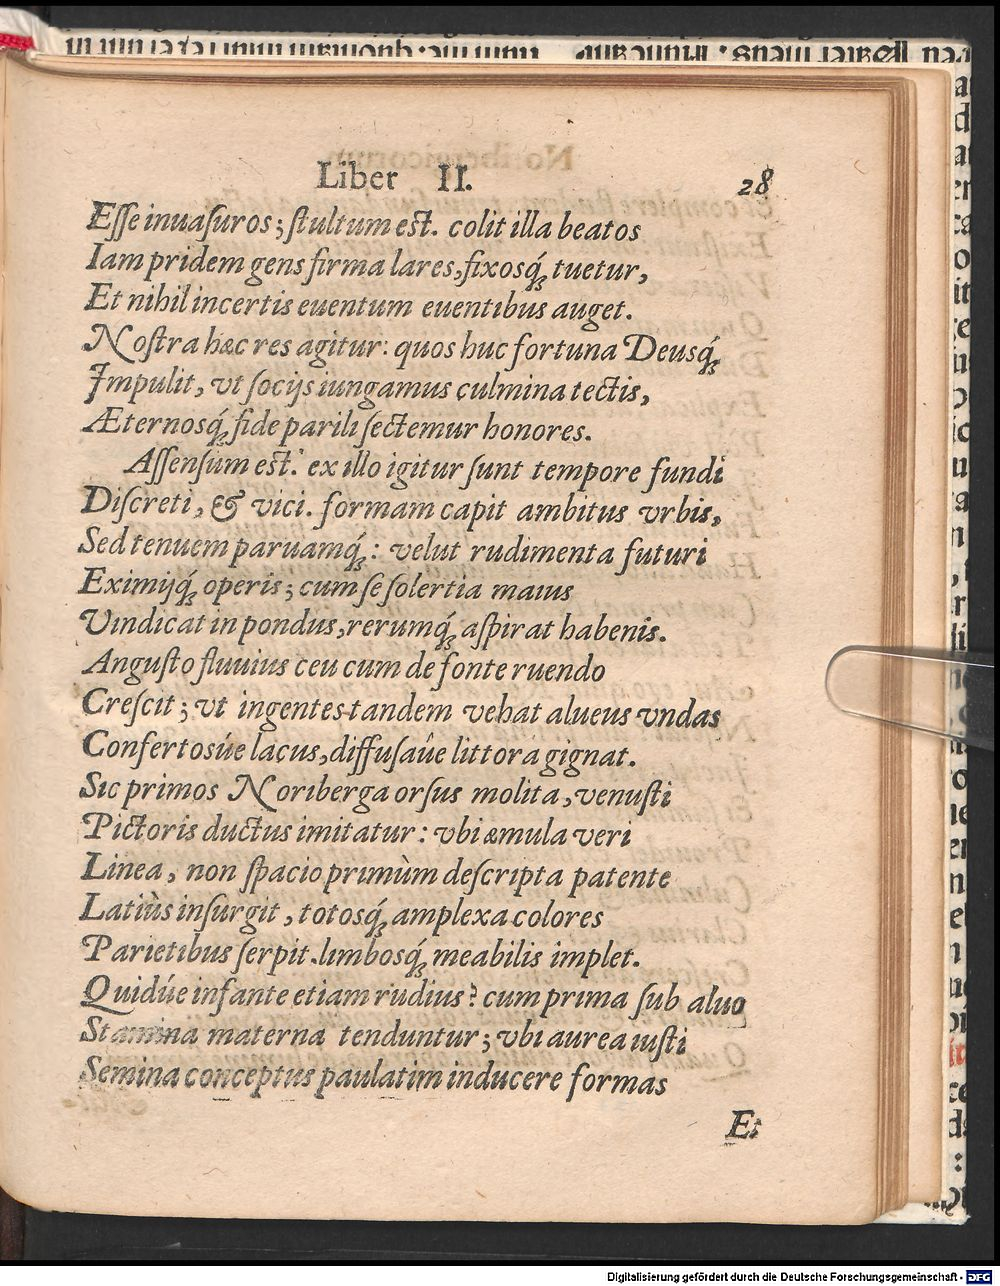 Liber II. 28
Eſſe inuaſuros; ſtultum eſt. colit illa beatos
Iam pridem gens firma lares, fixosq́; tuetur,
Et nihil incertis euentum euentibus auget.
Noſtra hæc res agitur: quos huc fortuna Deusq́;
Impulit, vt ſocijs iungamus culmina tectis,
Æternosq́; fide parili ſectemur honores.
Aſſenſum eſt. ex illo igitur ſunt tempore fundi
Diſcreti, & vici. formam capit ambitus vrbis,
Sed tenuem paruamq́;: velut rudimenta futuri
Eximijq́; operis; cum ſe ſolertia maius
Vindicat in pondus, rerumq́; aſpirat habenis.
Anguſto fluuius ceu cum de fonte ruendo
Creſcit; vt ingentes tandem vehat alueus vndas
Confertosúe lacus, diffuſaúe littora gignat.
Sic primos Noriberga orſus molita, venuſti
Pictoris ductus imitatur: vbi æmula veri
Linea, non ſpacio primùm deſcripta patente
Latiùs inſurgit, totosq́; amplexa colores
Parietibus ſerpit. limbosq́; meabilis implet.
Quidúe infante etiam rudius? cum prima ſub aluo
Stamina materna tenduntur; vbi aurea iuſti
Semina conceptus paulatim inducere formas
Et
Digitalisierung gefördert durch die Deutsche Forschungsgemeinschaft - DFG